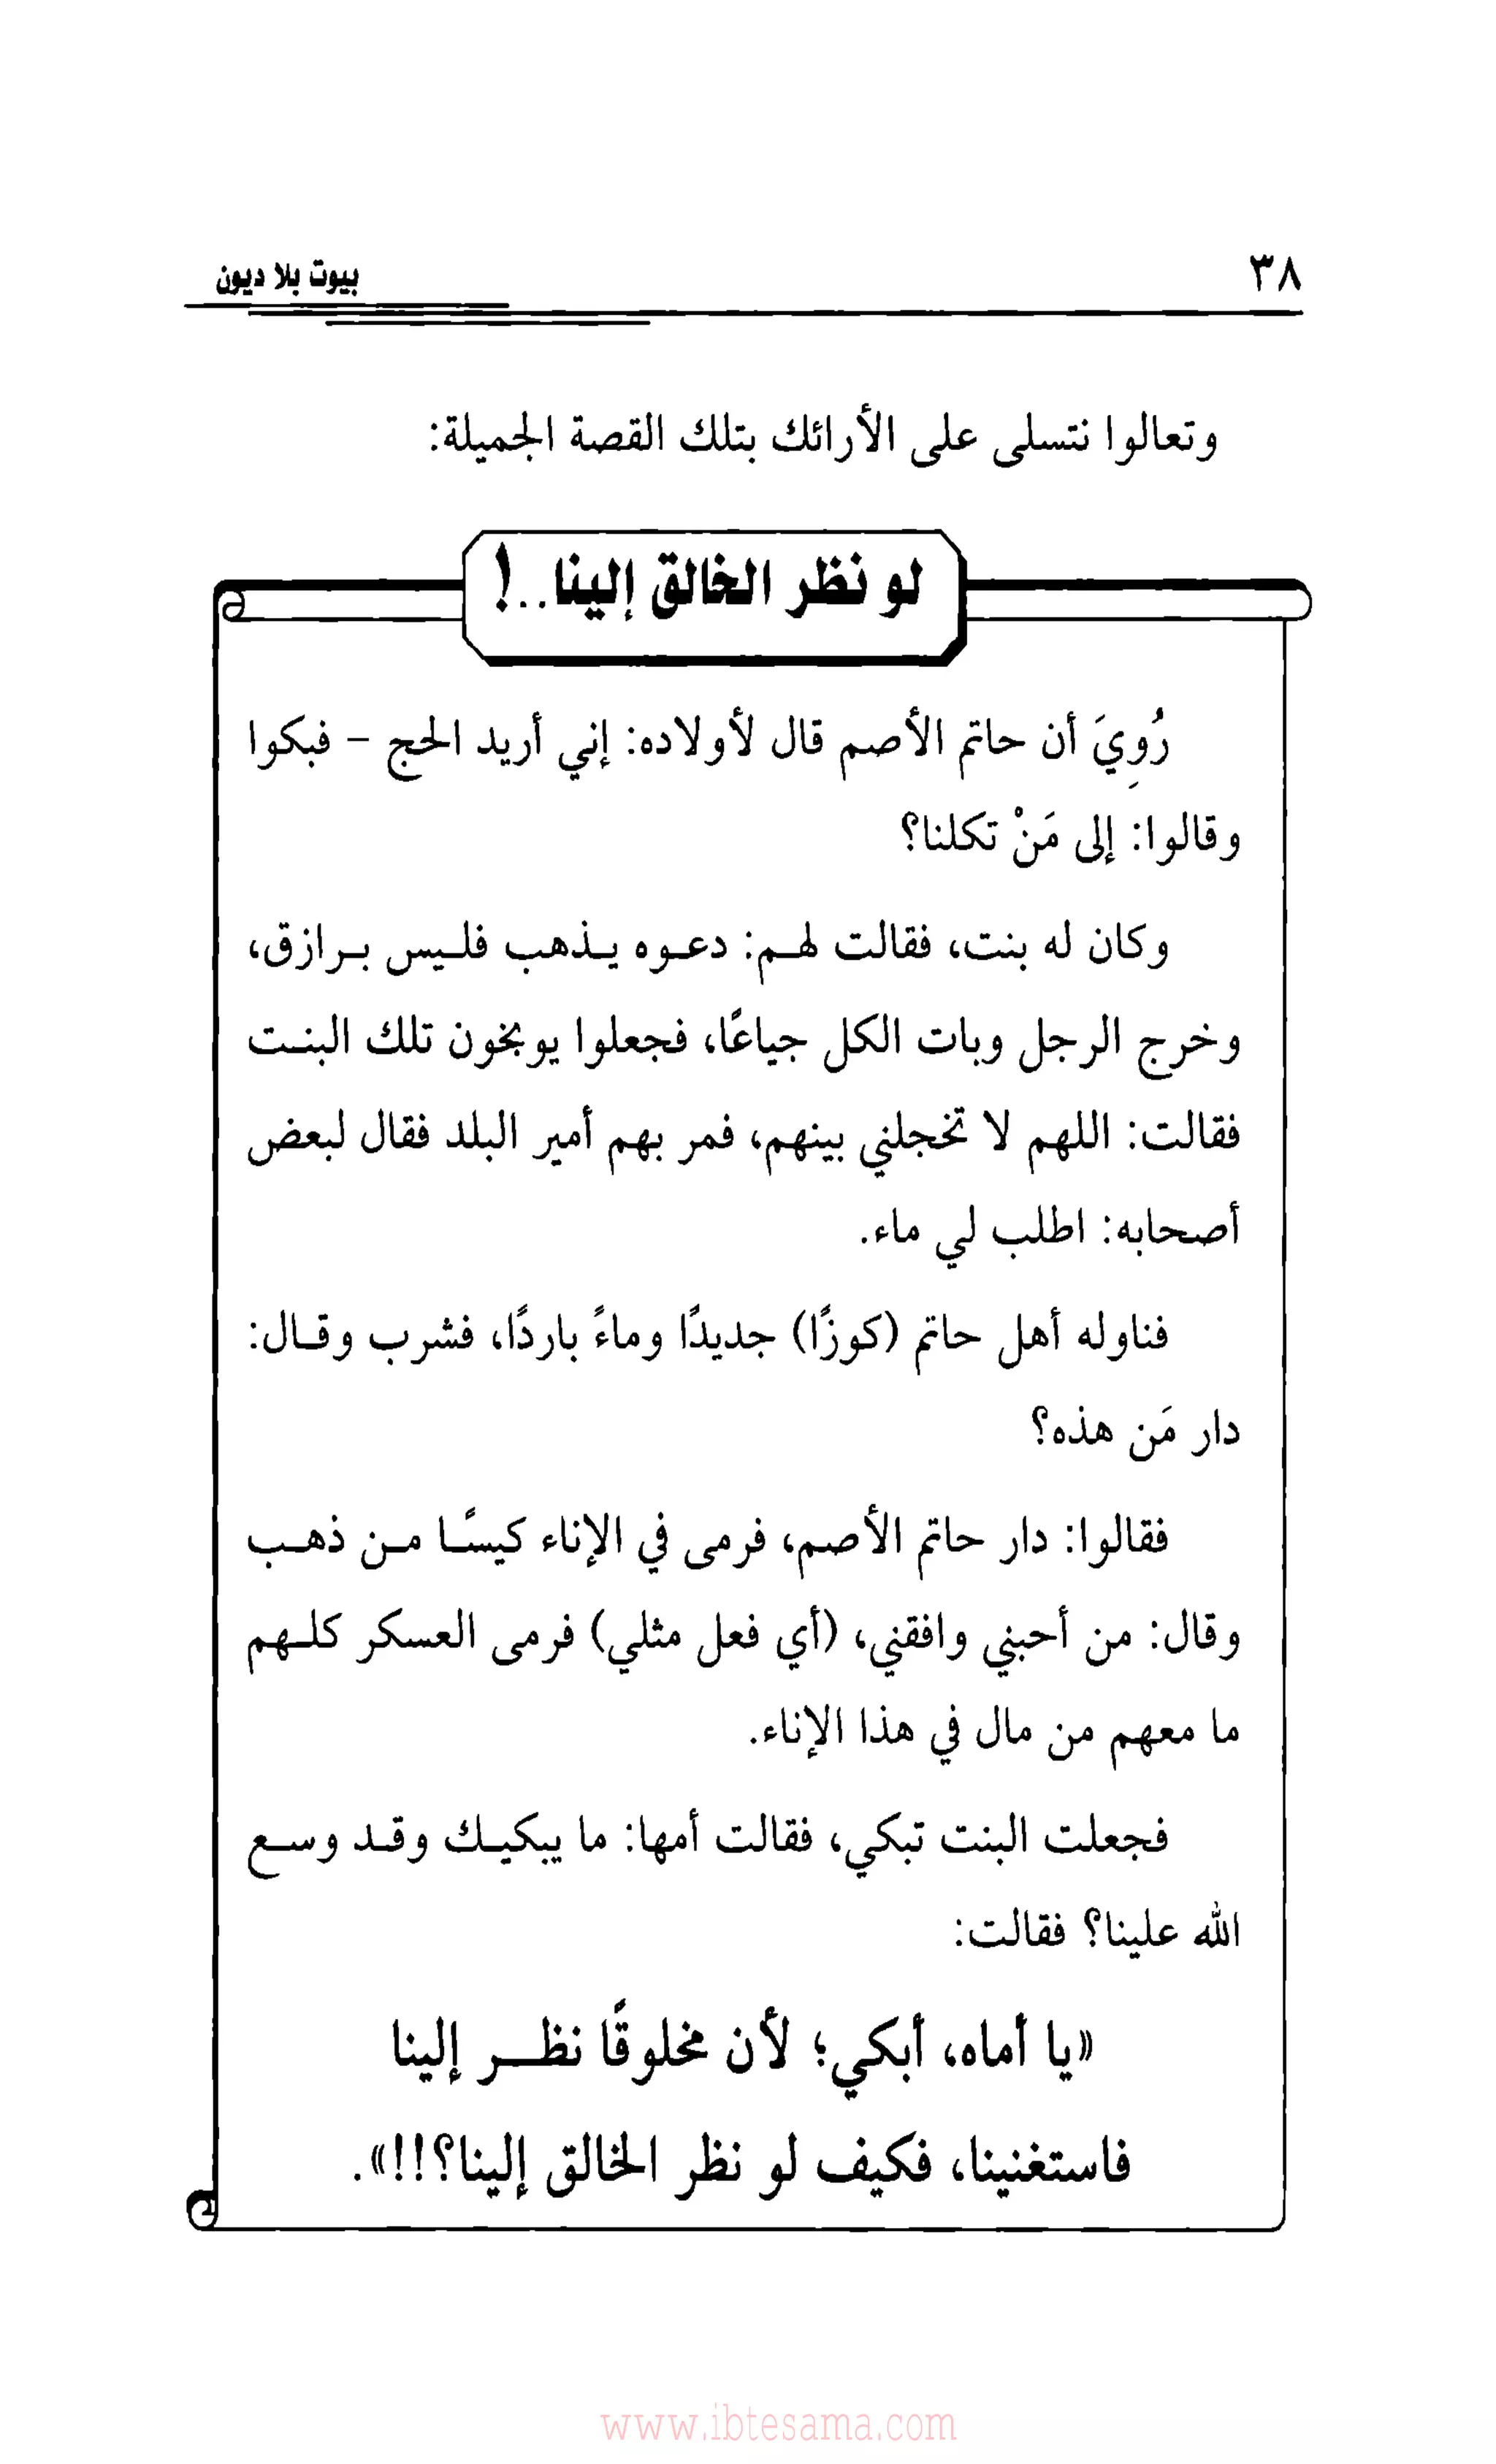 ٣٨
بيوت بلا ديون
وتعالوا نتسلى على الأرائك بتلك القصة الجميلة:
لو نظر الخالق إلينا..!
رُوِيَ أن حاتم الأصم قال لأولاده: إني أريد الحج - فبكوا
وقالوا: إلى مَنْ تكلنا؟
وكان له بنت، فقالت لهم: دعوه يذهب فليس برازق،
وخرج الرجل وبات الكل جياعًا، فجعلوا يوبخون تلك البنت
فقالت: اللهم لا تخجلني بينهم، فمر بهم أمير البلد فقال لبعض
أصحابه: اطلب لي ماء.
فناوله أهل حاتم (كوزًا) جديدًا وماءً باردًا، فشرب وقال:
دار مَن هذه؟
فقالوا: دار حاتم الأصم، فرمى في الإناء كيسًا من ذهب
وقال: من أحبني وافقني، (أي فعل مثلي) فرمى العسكر كلهم
ما معهم من مال في هذا الإناء.
فجعلت البنت تبكي، فقالت أمها: ما يبكيك وقد وسع
الله علينا؟ فقالت:
«يا أماه، أبكي؛ لأن مخلوقًا نظر إلينا
فاستغنينا، فكيف لو نظر الخالق إلينا؟!!».
www.ibtesama.com